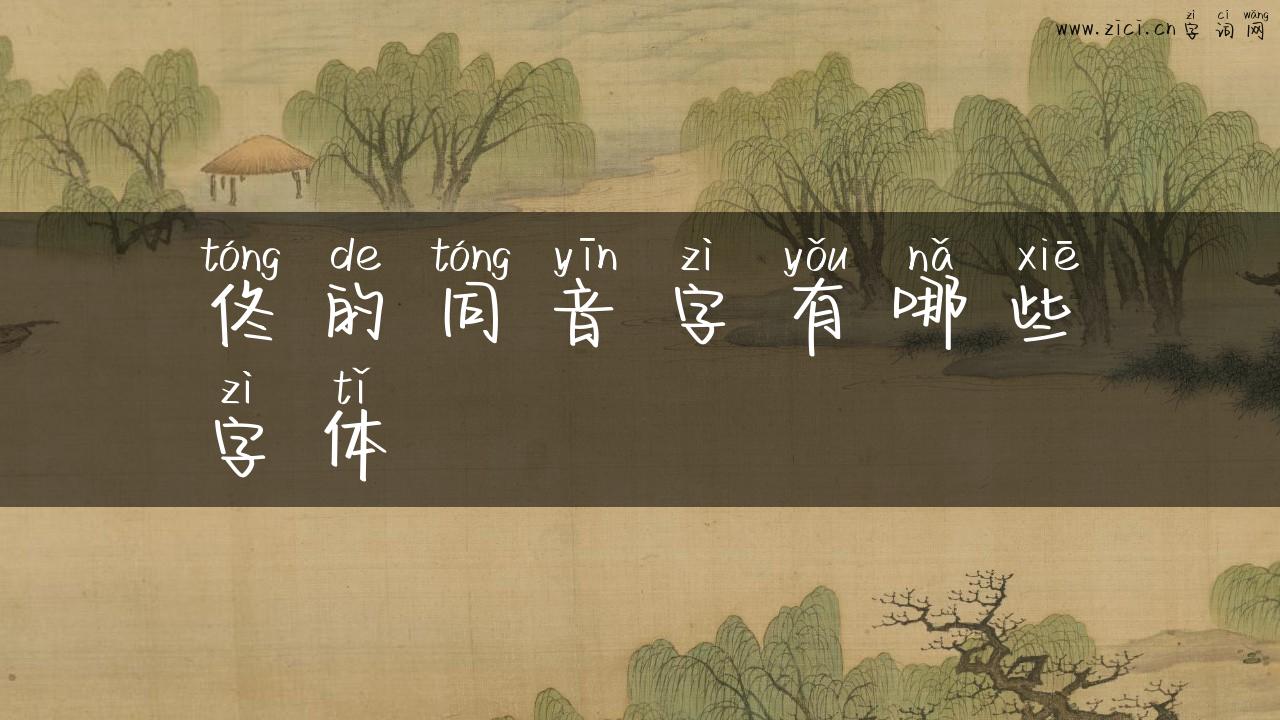 zì cí wǎng
www.zici.cn 字 词 网
tóng de tóng yīn zì yǒu nǎ xiē
佟 的 同 音 字 有 哪 些
zì tǐ
字 体